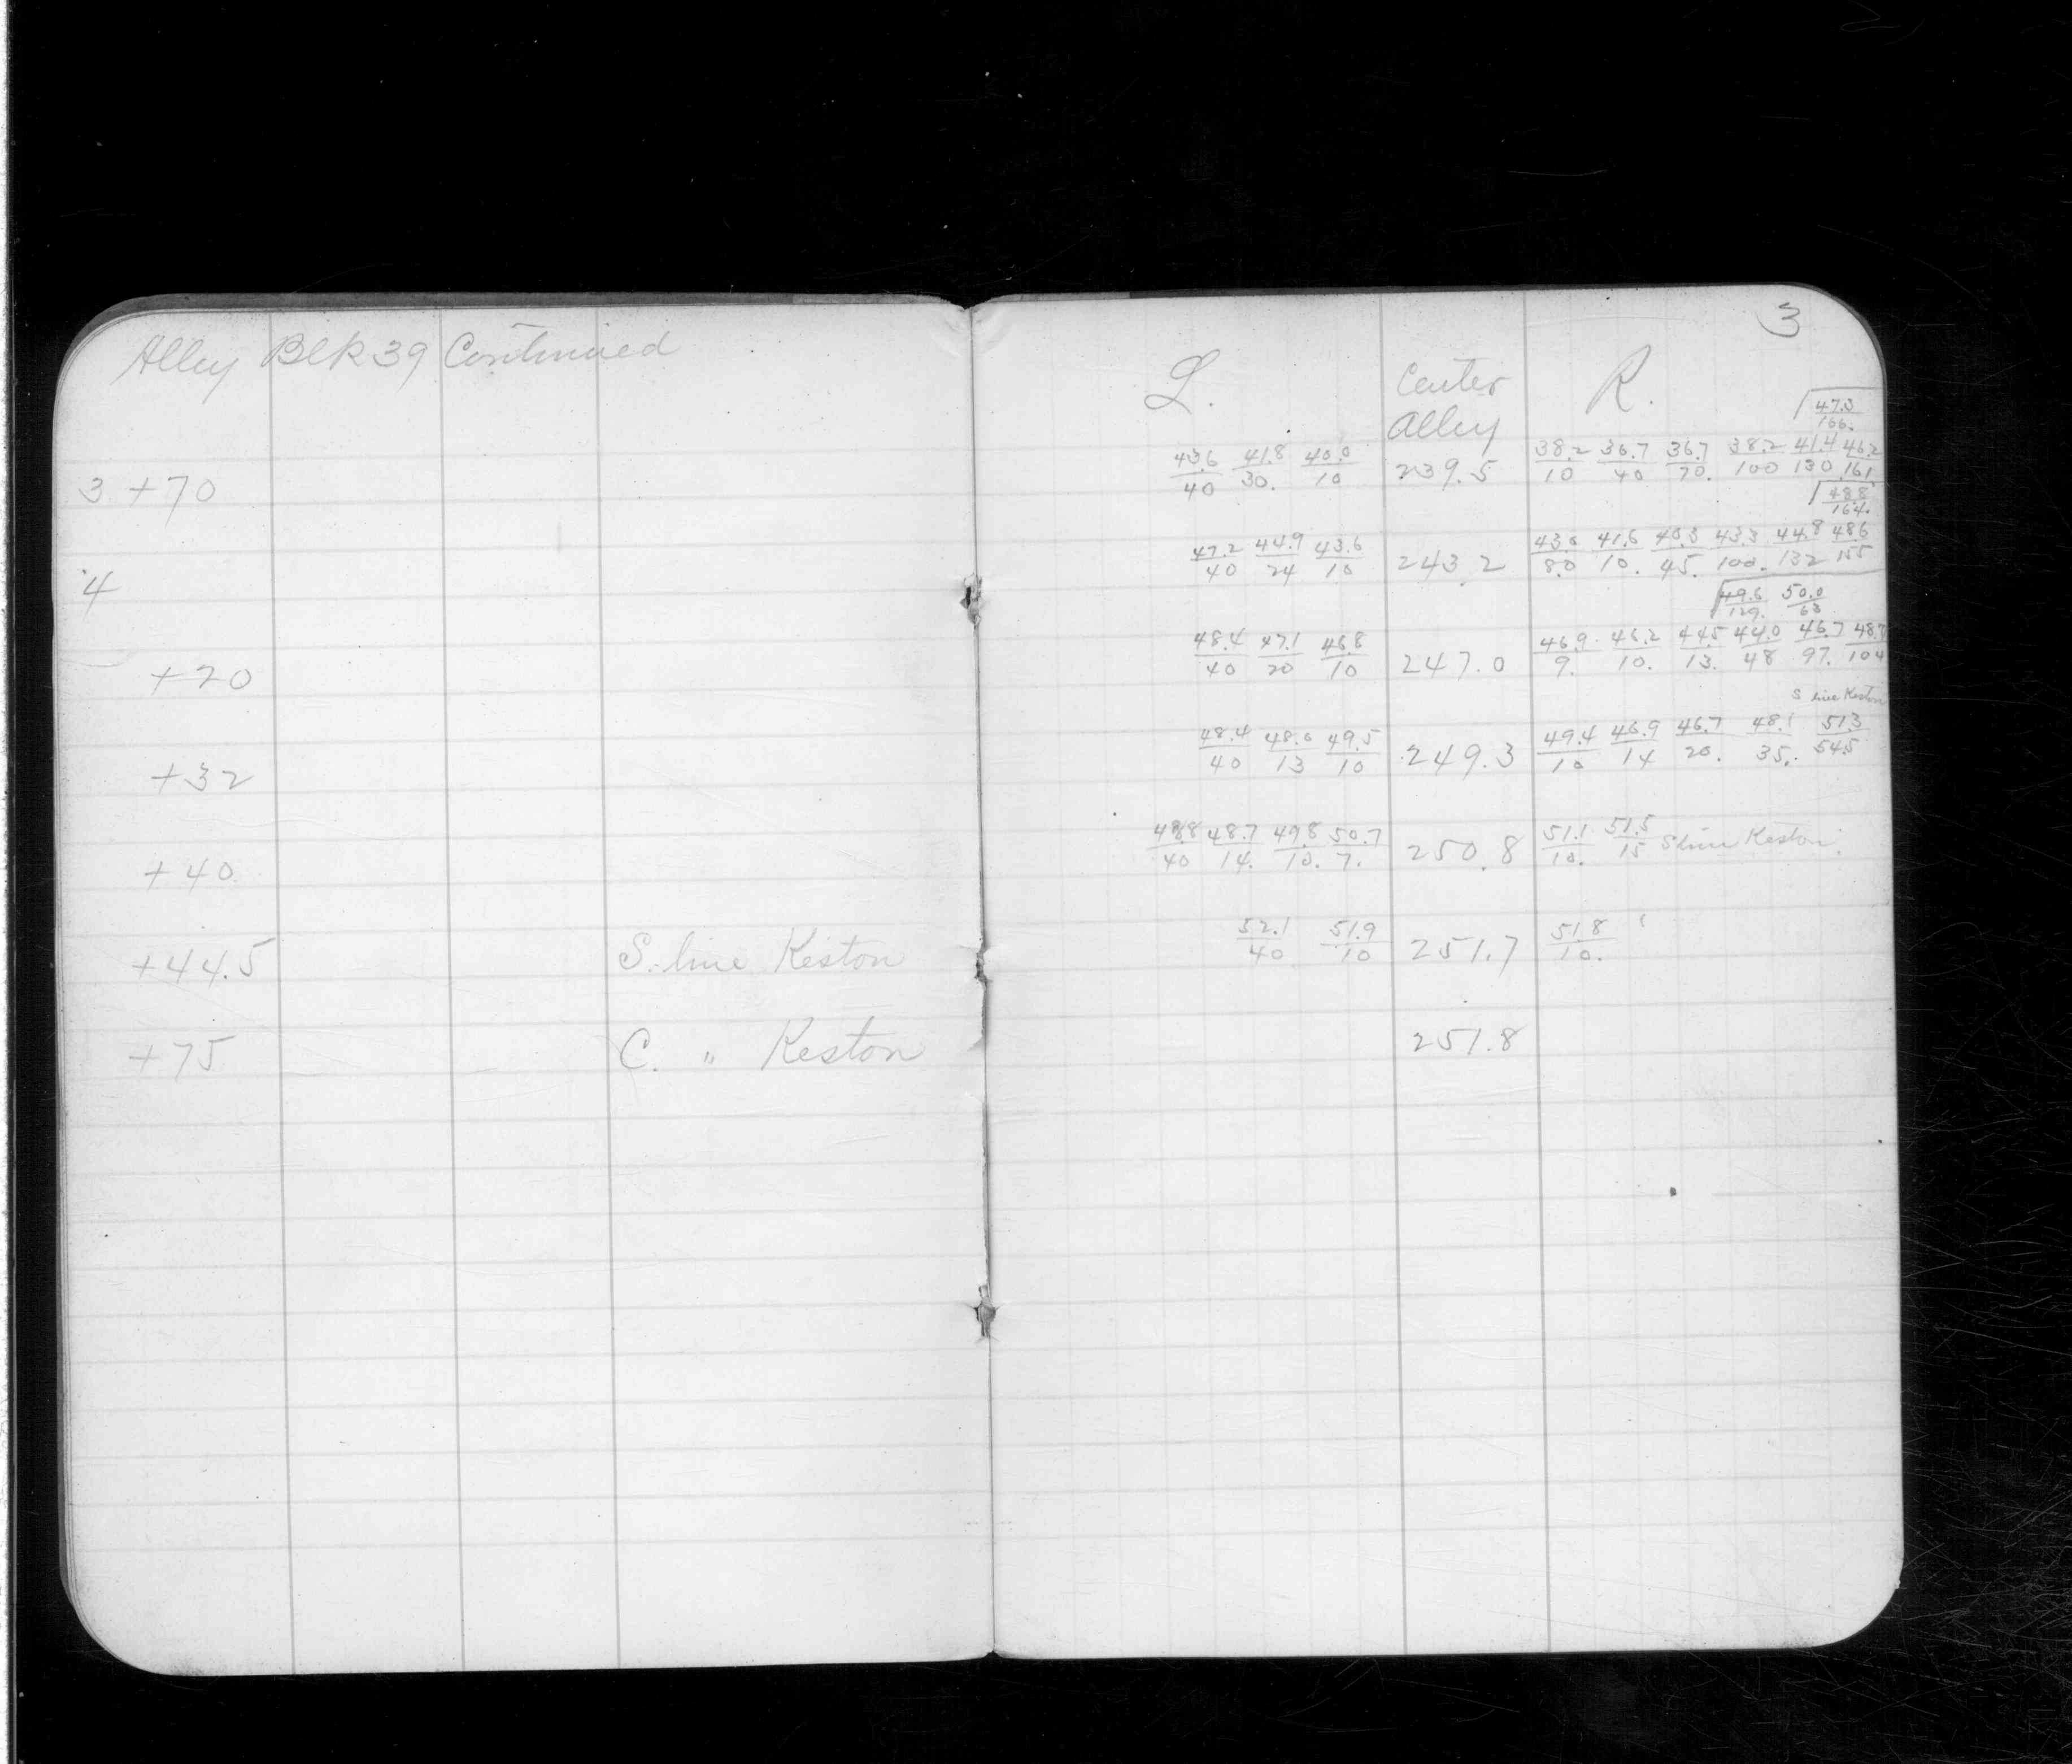 Alley Blk 39 Continued
3 +70
4
+20
+32
+40
+44.5 S. line Keston
+75 C. " Keston
3
L. Center R.
Alley
47.3/166.
43.6/40 41.8/30. 40.0/10 239.5 38.2/10 36.7/40 36.7/70. 38.2/100 41.4/130 46.2/161
48.8/164.
47.2/40 44.9/24 43.6/10 243.2 43.0/8.0 41.6/10. 40.3/45. 43.3/100. 44.8/132 48.6/155
49.6/129. 50.0/63
48.4/40 47.1/20 46.8/10 247.0 46.9/9. 46.2/10. 44.5/13. 44.0/48 46.7/97. 48.7/104
S line Keston
48.4/40 48.0/13 49.5/10 249.3 49.4/10 46.9/14 46.7/20. 48.1/35. 51.3/54.5
48.8/40 48.7/14. 49.8/10. 50.7/7. 250.8 51.1/10. 51.5/15 S line Keston.
52.1/40 51.9/10 251.7 51.8/10.
251.8